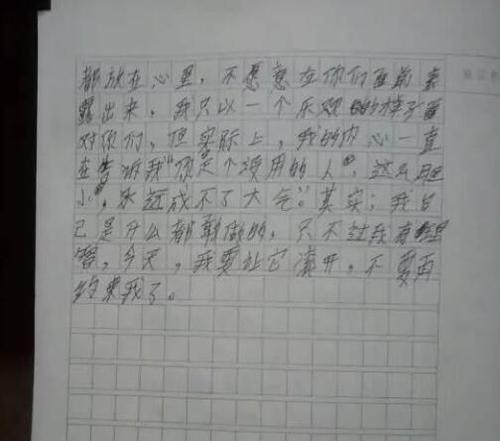 都放在心里,不愿意在你们面前表
露出来,我只以一个乐观的样子面
对你们,但实际上,我的内心一直
在告诉我“你是个没用的人”,这么胆
小,永远成不了大气。其实;我自
己是什么都敢做的,只不过我有
,今天,我要让它滚开,不要再
约束我了。